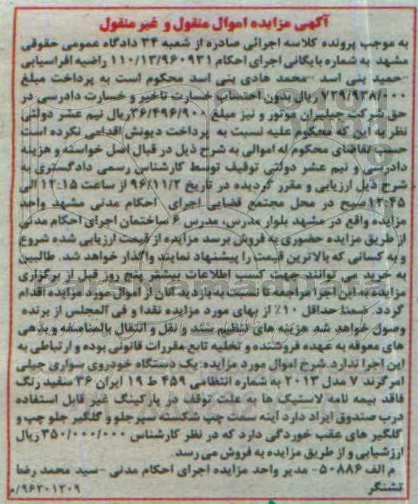 آگهی مزایده اموال منقول و غیر منقول
به موجب پرونده کلاسه اجرائی صادره از شعبه ۳۴ دادگاه عمومی حقوقی
مشهد به شماره بایگانی اجرای احکام ۱۱۰/۱۳/۹۶۰۹۳۱ راضیه افراسیابی
-حمید بنی اسد -محمد هادی بنی اسد محکوم است به پرداخت مبلغ
۷۲۹/۹۳۸/۰۰۰ ریال بدون احتساب خسارت تاخیر و خسارت دادرسی در
حق شرکت جیلیران موتور و نیز مبلغ ۳۶/۴۹۶/۹۰۰ ریال نیم عشر دولتی
نظر به این که محکوم علیه نسبت به پرداخت دیونش اقدامی نکرده است
حسب تقاضای محکوم له اموالی به شرح ذیل در قبال اصل خواسته و هزینه
دادرسی و نیم عشر دولتی توقیف توسط کارشناس رسمی دادگستری به
شرح ذیل ارزیابی و مقرر گردیده در تاریخ ۹۶/۱۱/۲ از ساعت ۱۲:۱۵ الی
۱۲:۴۵ صبح در محل مجتمع قضایی اجرای احکام مدنی مشهد واحد
مزایده واقع در مشهد بلوار مدرس، مدرس ۶ ساختمان اجرای احکام مدنی
از طریق مزایده حضوری به فروش برسد مزایده از قیمت ارزیابی شده شروع
و به کسانی که بالاترین قیمت را پیشنهاد نمایند واگذار خواهد شد. طالبین
به خرید می توانند جهت کسب اطلاعات بیشتر پنج روز قبل از برگزاری
مزایده به این اجرا مراجعه تا نسبت به بازدید آنان از اموال مورد مزایده اقدام
گردد. ضمنا حداقل ۱۰٪ از بهای مورد مزایده نقدا و فی المجلس از برنده
وصول خواهد شد هزینه های تنظیم سند و نقل و انتقال بالمناصفه و بدهی
های معوقه به عهده فروشنده و تخلیه تابع مقررات قانونی بوده و ارتباطی به
این اجرا ندارد. شرح اموال مورد مزایده: یک دستگاه خودروی سواری جیلی
امرگرند ۷ مدل ۲۰۱۳ به شماره انتظامی ۴۵۹ ط ۱۹ ایران ۳۶ سفید رنگ
فاقد بیمه نامه لاستیک ها به علت توقف در پارکینگ غیر قابل استفاده
درب صندوق ایراد دارد اینه سمت چپ شکسته سپر جلو و گلگیر جلو چپ و
گلگیر های عقب خوردگی دارد که در نظر کارشناس ۳۵۰/۰۰۰/۰۰۰ ریال
ارزشیابی و از طریق مزایده به فروش می رسد.
م الف ۵۰۸۸۶- مدیر واحد مزایده اجرای احکام مدنی -سید محمد رضا
تشنگر
۹۶۲۰۱۳۰۹/م